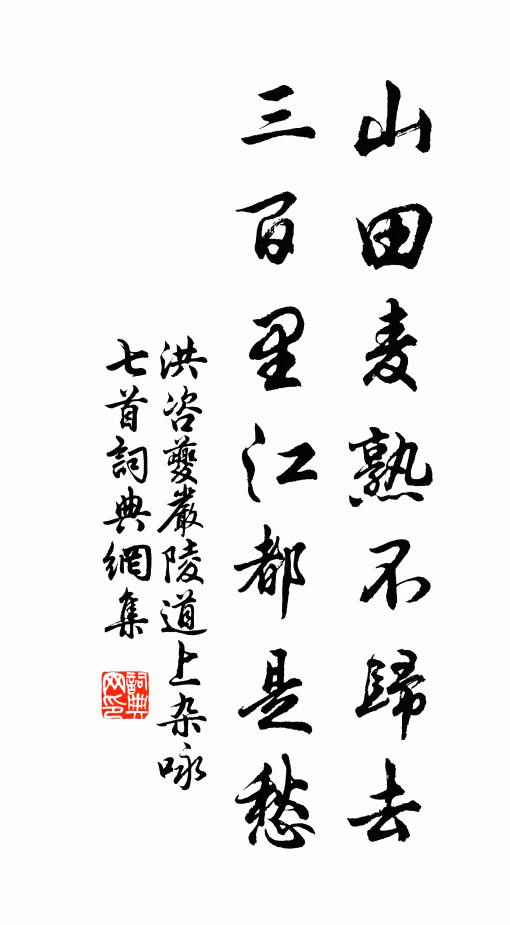 山田麦熟不歸去
三百里江都是愁
洪咨夔嚴陵道上杂咏
七首詞典網集
詞典
网印